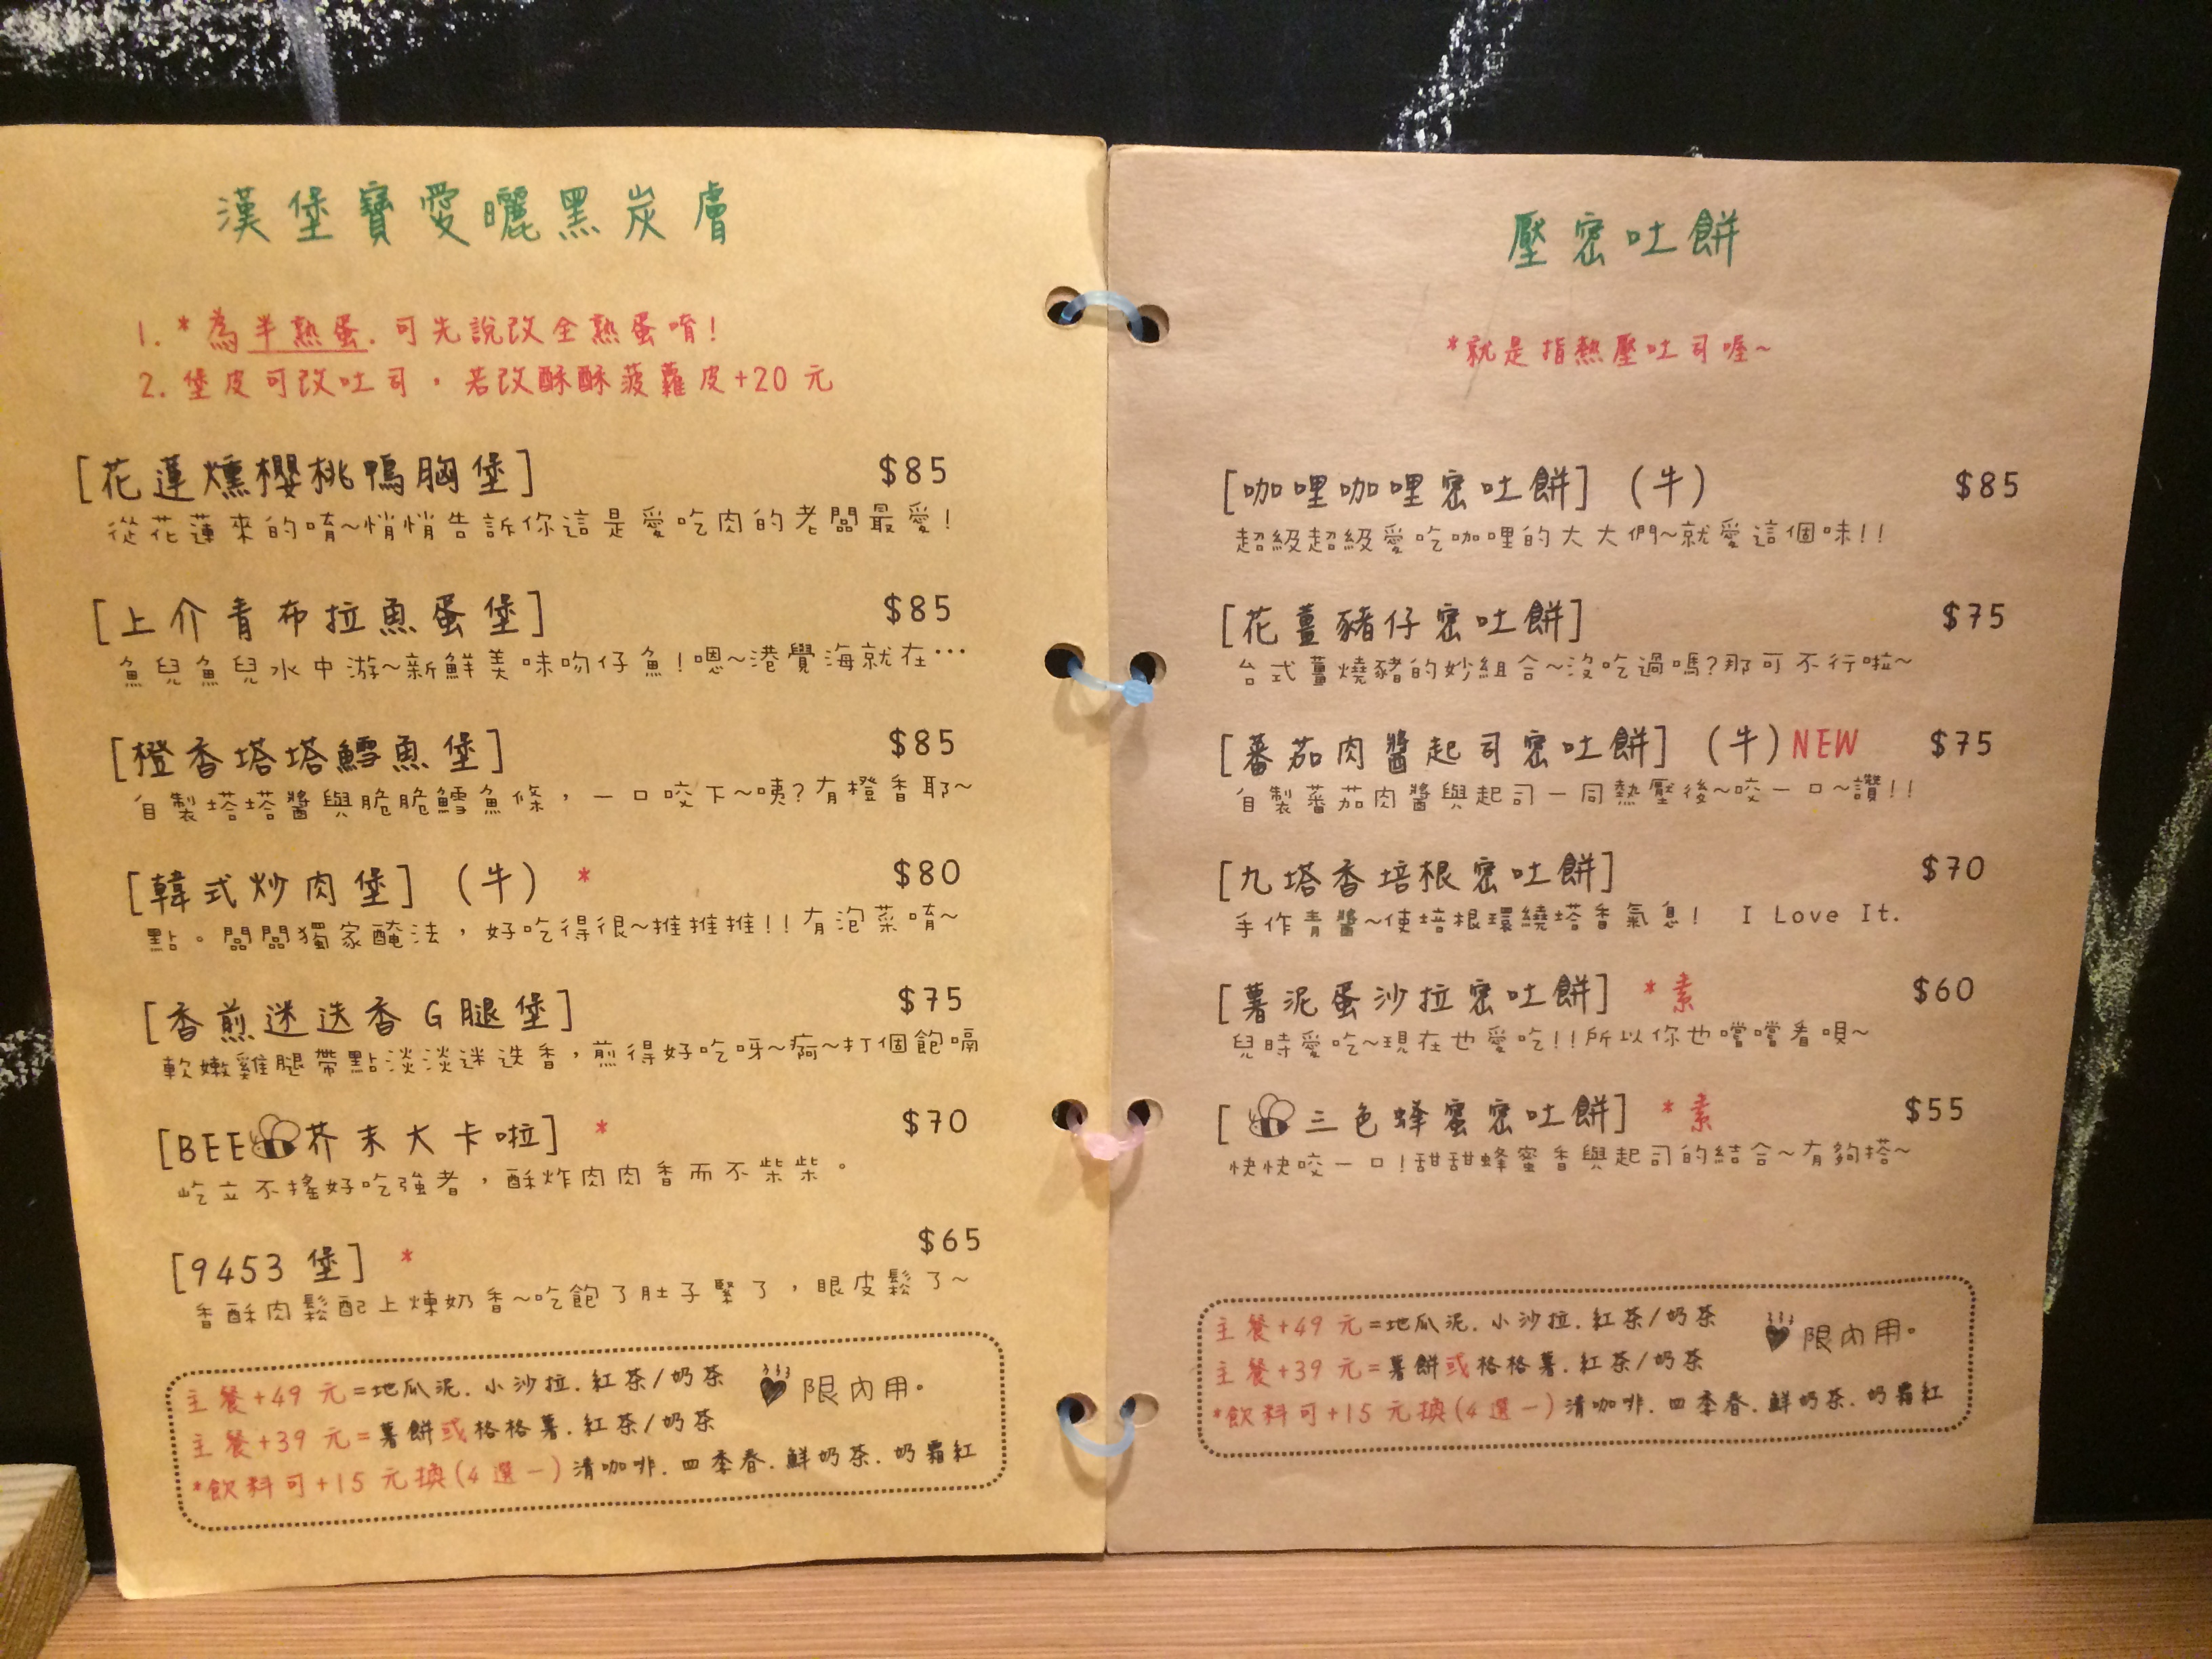 漢堡寶愛曬黑炭膚
1. *為半熟蛋.可先說改全熟蛋唷!
2. 堡皮可改吐司，若改酥酥菠蘿皮+20 元
[花蓮燻櫻桃鴨胸堡] $85
從花蓮來的唷~悄悄告訴你這是愛吃肉的老闆最愛!
[上介青布拉魚蛋堡] $85
魚兒魚兒水中游~新鮮美味吻仔魚!嗯~港覺海就在…
[橙香塔塔鱈魚堡] $85
自製塔塔醬與脆脆鱈魚條，一口咬下~咦?有橙香耶~
[韓式炒肉堡] (牛) * $80
點。闆闆獨家醃法，好吃得很~推推推!!有泡菜唷~
[香煎迷迭香G腿堡] $75
軟嫩雞腿帶點淡淡迷迭香，煎得好吃呀~痾~打個飽嗝
[BEE芥末大卡啦] * $70
屹立不搖好吃強者，酥炸肉肉香而不柴柴。
[9453 堡] * $65
香酥肉鬆配上煉奶香~吃飽了肚子緊了，眼皮鬆了~
主餐+49 元=地瓜泥.小沙拉.紅茶/奶茶 限內用。
主餐+39 元=薯餅或格格薯.紅茶/奶茶
*飲料可+15 元換(4選一)清咖啡.四季春.鮮奶茶.奶霜紅
壓密吐餅
*就是指熱壓吐司喔~
[咖哩咖哩密吐餅] (牛) $85
超級超級愛吃咖哩的大大們~就愛這個味!!
[花薑豬仔密吐餅] $75
台式薑燒豬的妙組合~沒吃過嗎?那可不行啦~
[蕃茄肉醬起司密吐餅] (牛)NEW $75
自製蕃茄肉醬與起司一同熱壓後~咬一口~讚!!
[九塔香培根密吐餅] $70
手作青醬~使培根環繞塔香氣息! I Love It.
[薯泥蛋沙拉密吐餅] *素 $60
兒時愛吃~現在也愛吃!!所以你也嚐嚐看唄~
[三色蜂蜜密吐餅] *素 $55
快快咬一口!甜甜蜂蜜香與起司的結合~有夠搭~
主餐+49 元=地瓜泥.小沙拉.紅茶/奶茶 限內用。
主餐+39 元=薯餅或格格薯.紅茶/奶茶
*飲料可+15 元換(4選一)清咖啡.四季春.鮮奶茶.奶霜紅